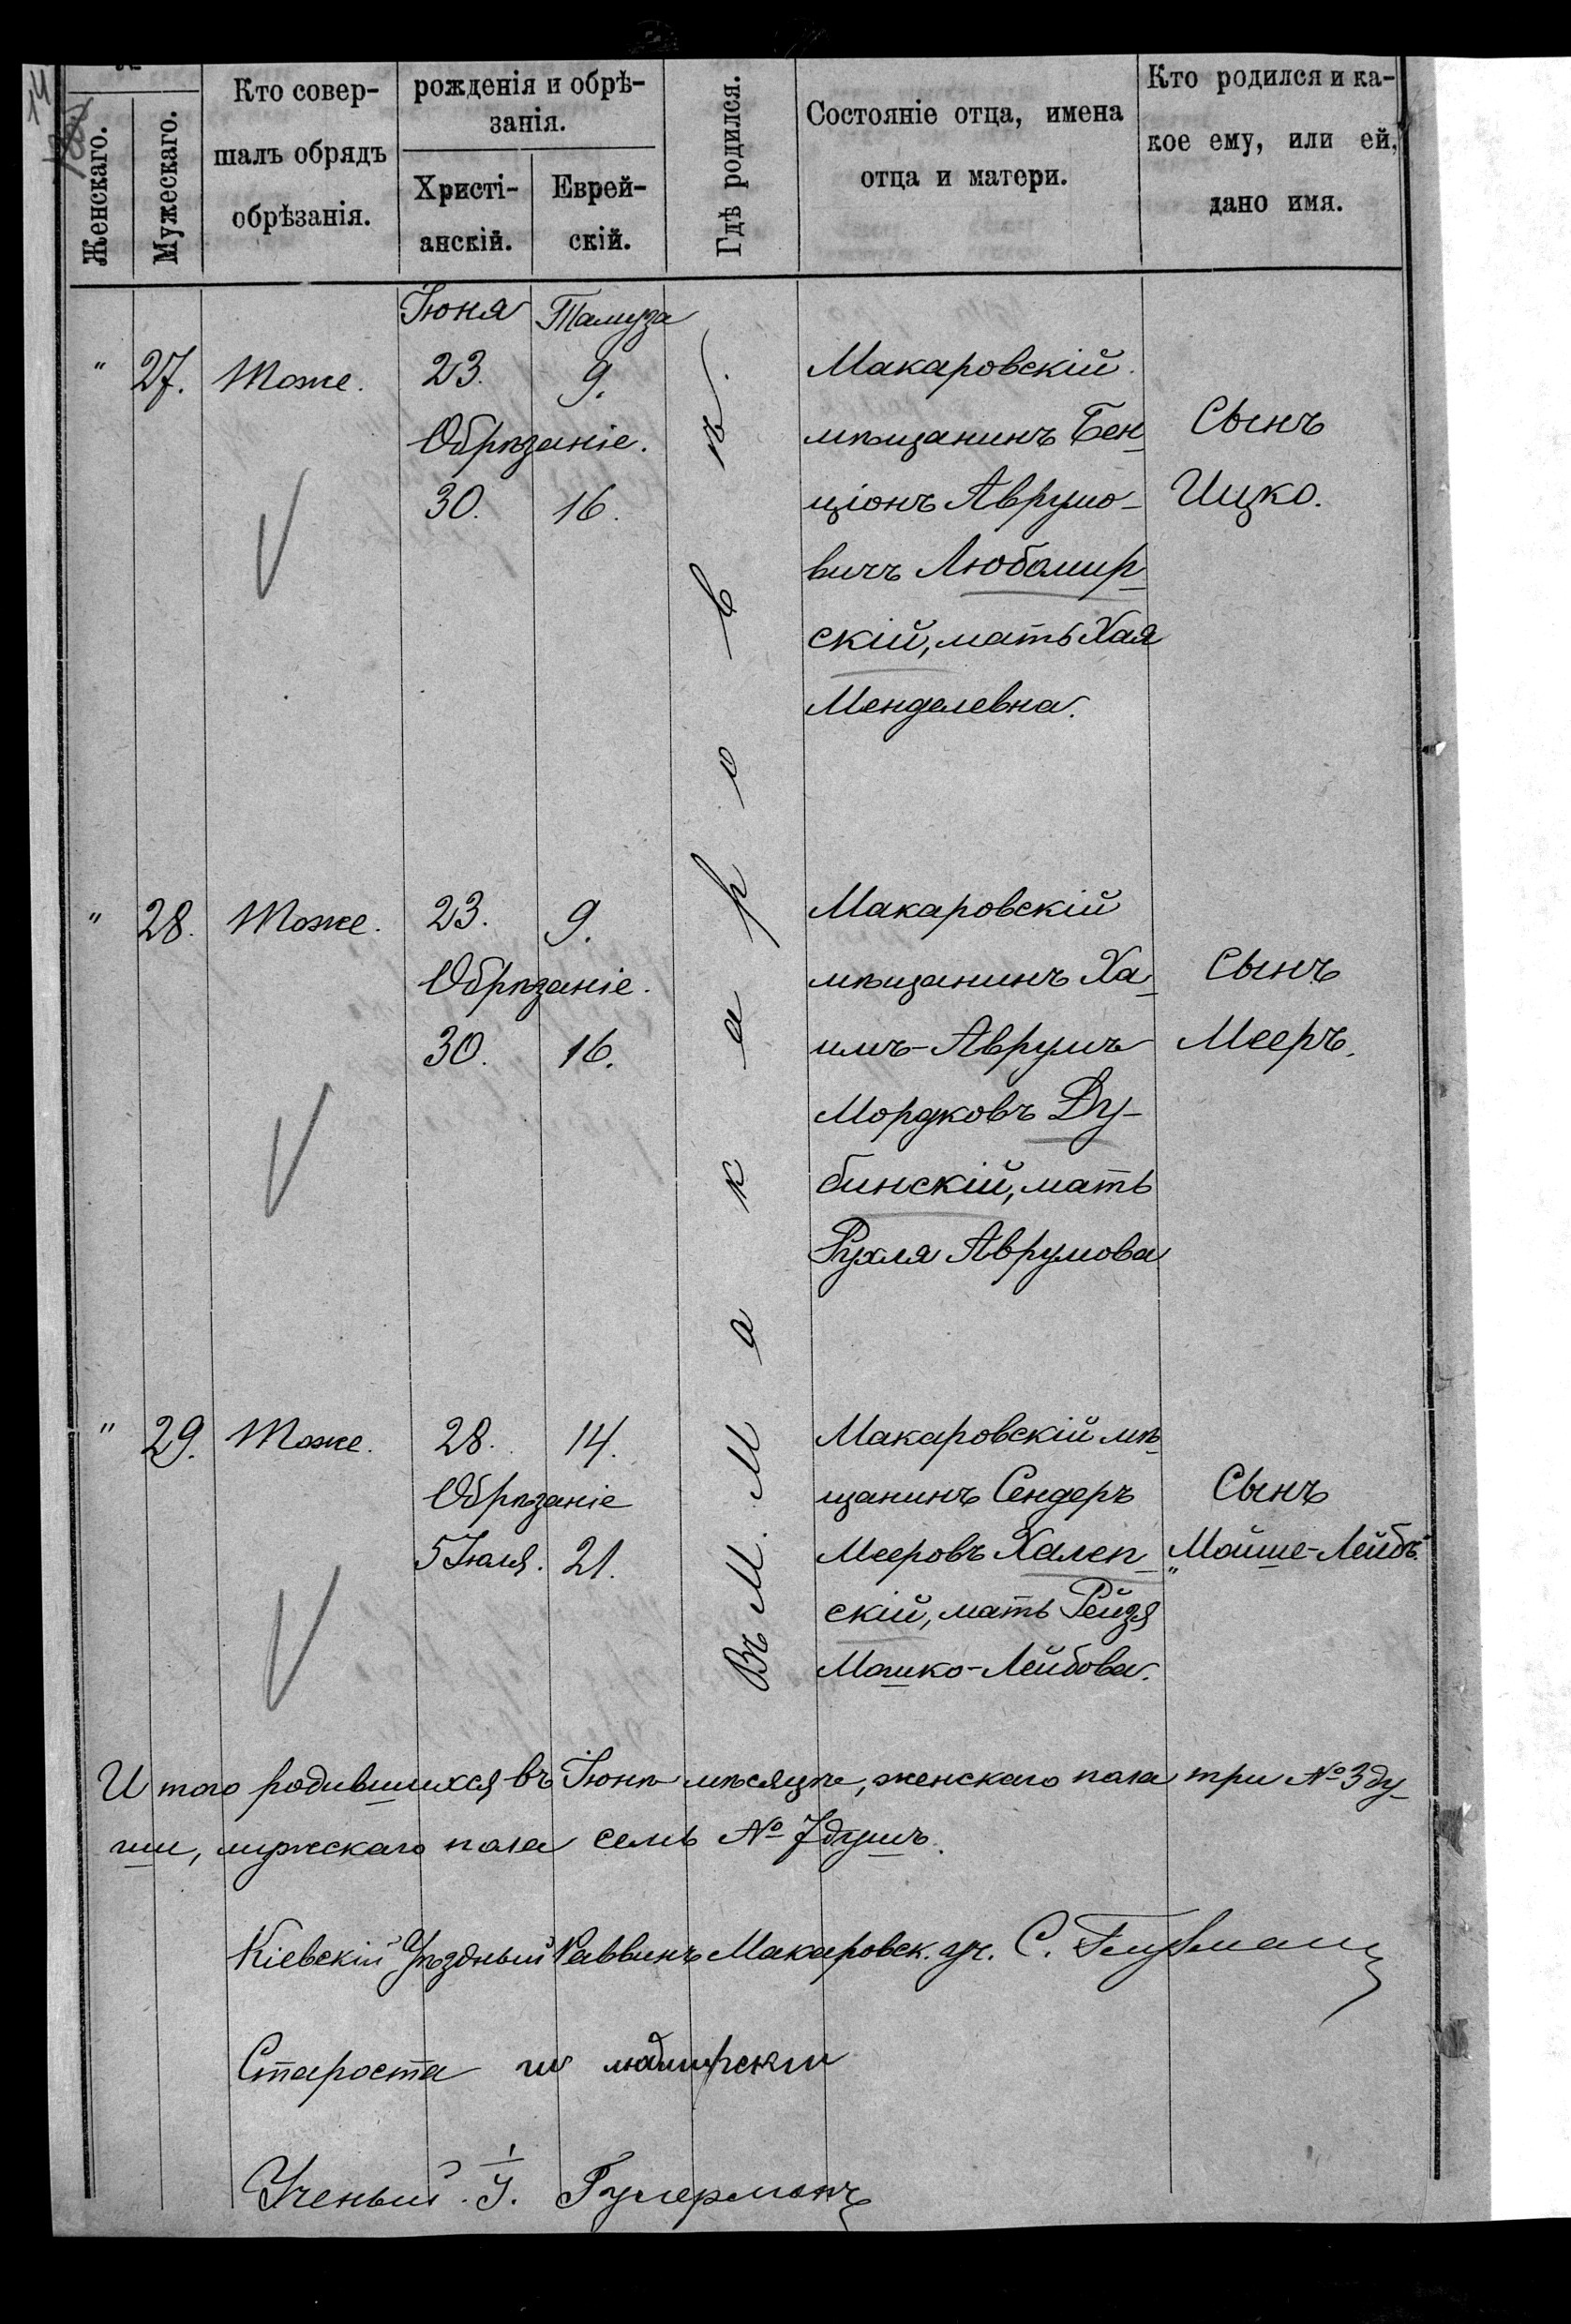 Женскаго.
Мужескаго.
Кто совер-
шалъ обрядъ
обрѣзанія.
рожденія и обрѣ-
занія.
Христі-
анскій.
Еврей-
скій.
Гдѣ родился.
Состояніе отца, имена
отца и матери.
Кто родился и ка-
кое ему, или ей,
дано имя.
Іюня Тамуза
" 27. Тоже. 23. 9.
Обрѣзаніе.
30. 16.
Макаровскій
мѣщанинъ Бен-
ціонъ Аврумо-
вичъ Любомир-
скій, мать Хая
Менделевна.
Сынъ
Ицко.
" 28. Тоже. 23. 9.
Обрѣзаніе.
30. 16.
Макаровскій
мѣщанинъ Ха-
имъ-Аврумъ
Мордковъ Ду-
бинскій, мать
Рухля Аврумова
Сынъ
Мееръ.
" 29. Тоже. 28. 14.
Обрѣзаніе
5 Іюля. 21.
Макаровскій мѣ-
щанинъ Сендеръ
Мееровъ Халеп-
скій, мать Рейзя
Мошко-Лейбова.
Сынъ
"Мойше-Лейбъ"
Въ М. Макаровѣ.
И того родившихся въ Іюнѣ мѣсяцѣ, женскаго пола три № 3 ду-
ши, мужскаго пола семь № 7 душъ.
Кіевскій Уѣздный Раввинъ Макаровск. уч. С.
Староста ш
Ученый. І.